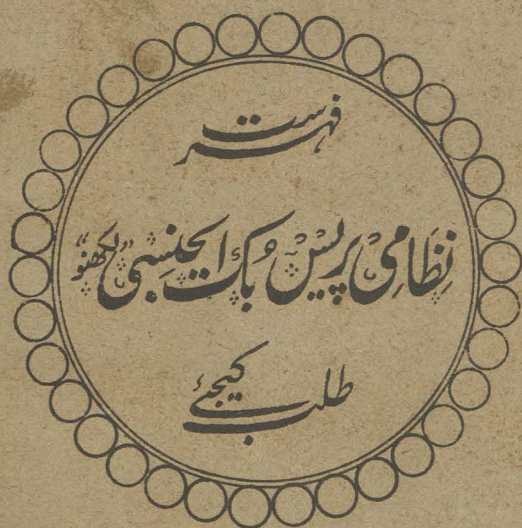 فہرست
نظامی پریس بک ایجنسی لکھنؤ
طلب کیجئے